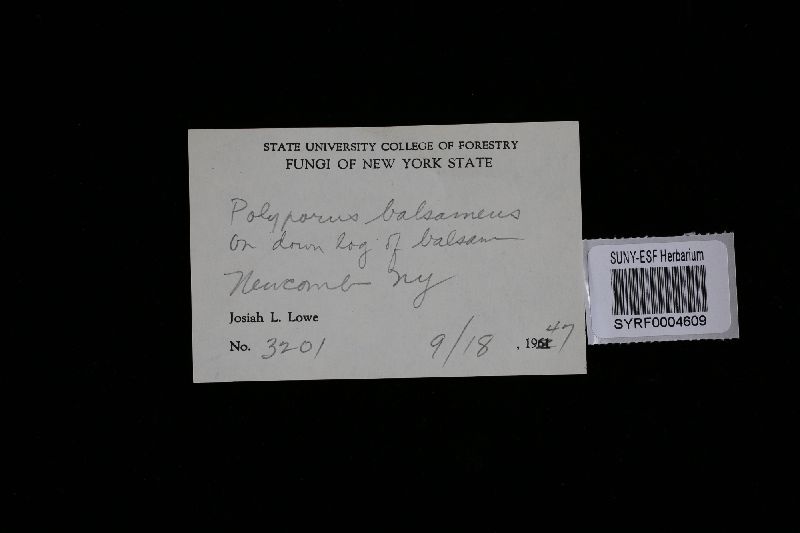 STATE UNIVERSITY COLLEGE OF FORESTRY
FUNGI OF NEW YORK STATE
Polyporus balsameus
on down log of balsam
Newcomb NY
Josiah L. Lowe
No. 3201 9/18, 1947
SUNY-ESF Herbarium
SYRF0004609